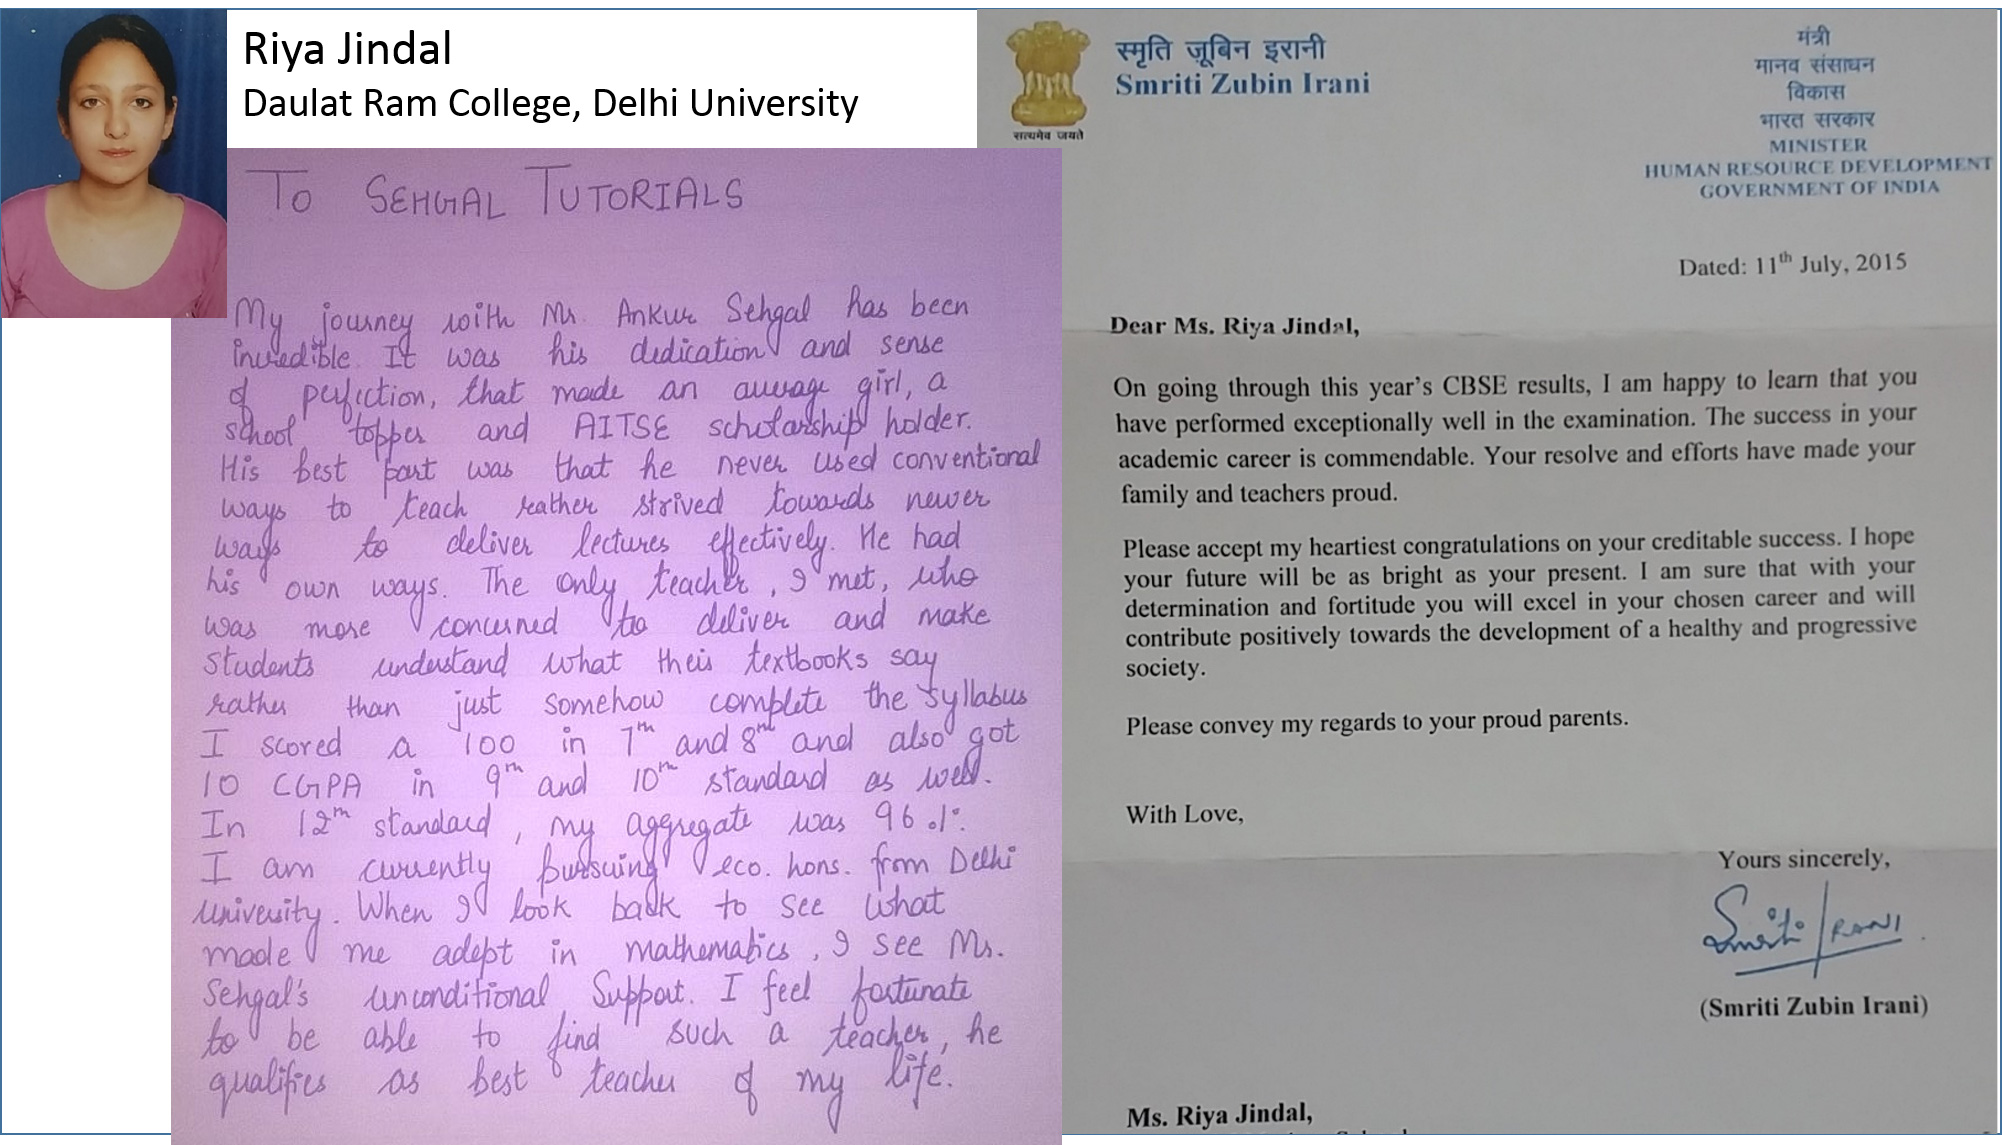 Riya Jindal
Daulat Ram College, Delhi University
TO SEHGAL TUTORIALS
My journey with Mr. Ankur Sehgal has been
incredible. It was his dedication and sense
of perfection, that made an average girl, a
school topper and AITSE scholarship holder.
His best part was that he never used conventional
ways to teach rather strived towards newer
ways to deliver lectures effectively. He had
his own ways. The only teacher, I met, who
was more concerned to deliver and make
students understand what their textbooks say
rather than just somehow complete the syllabus
I scored a 100 in 7th and 8th and also got
10 CGPA in 9th and 10th standard as well.
In 12th standard, my aggregate was 96%.
I am currently pursuing eco. hons. from Delhi
University. When I look back to see what
made me adept in mathematics, I see Mr.
Sehgal's unconditional Support. I feel fortunate
to be able to find such a teacher, he
qualifies as best teacher of my life.
सत्यमेव जयते
स्मृति ज़ूबिन इरानी
Smriti Zubin Irani
मंत्री
मानव संसाधन
विकास
भारत सरकार
MINISTER
HUMAN RESOURCE DEVELOPMENT
GOVERNMENT OF INDIA
Dated: 11th July, 2015
Dear Ms. Riya Jindal,
On going through this year's CBSE results, I am happy to learn that you
have performed exceptionally well in the examination. The success in your
academic career is commendable. Your resolve and efforts have made your
family and teachers proud.
Please accept my heartiest congratulations on your creditable success. I hope
your future will be as bright as your present. I am sure that with your
determination and fortitude you will excel in your chosen career and will
contribute positively towards the development of a healthy and progressive
society.
Please convey my regards to your proud parents.
With Love,
Yours sincerely,
Smriti IRANI
(Smriti Zubin Irani)
Ms. Riya Jindal,